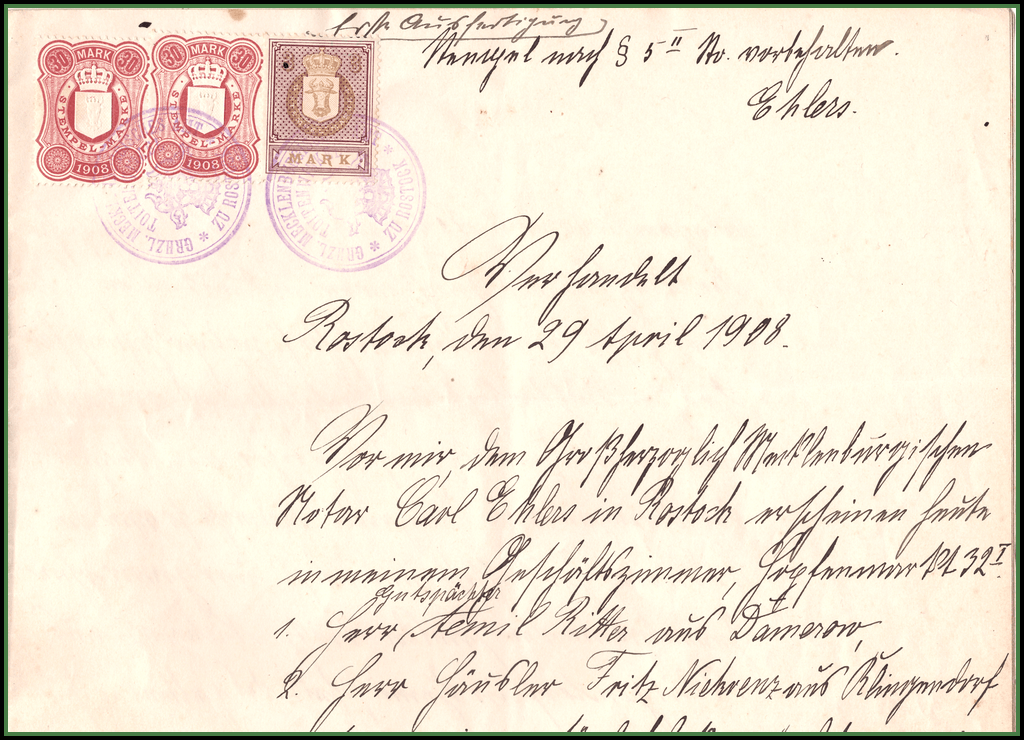 Erste Ausfertigung
Stempel nach § 5 II vorbehalten.
Ehlers.
30 MARK 30
STEMPEL-MARKE
1908
30 MARK 30
STEMPEL-MARKE
1908
MARK
GRHZL. MECKLENB
ZU ROS
GRHZL. MECKLENB
ZU ROSTOCK
Verhandelt
Rostock, den 29 April 1908.
Vor mir, dem Großherzoglich Mecklenburgischen
Notar Carl Ehlers in Rostock erscheinen heute
in meinem Geschäftszimmer, Hopfenmarkt 32 I.
Gutspächter
1. Herr Aemil Ritter aus Damerow,
2. Herr Häusler Fritz aus Klingendorf